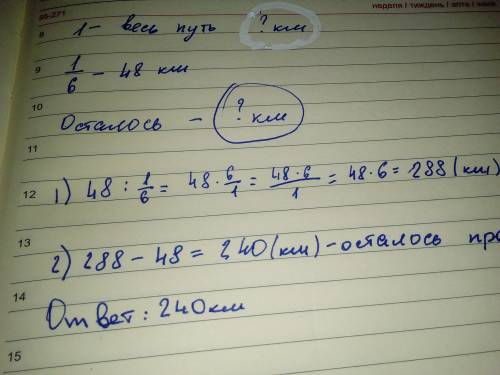 95-271 неделя / тиждень / апта / week
8 1 - весь путь ? км
9 1/6 - 48 км
10 Осталось - ? км
11
12 1) 48 : 1/6 = 48 · 6/1 = 48 · 6/1 = 48 · 6 = 288 (км)
13 2) 288 - 48 = 240 (км) - осталось
14 Ответ: 240 км
15